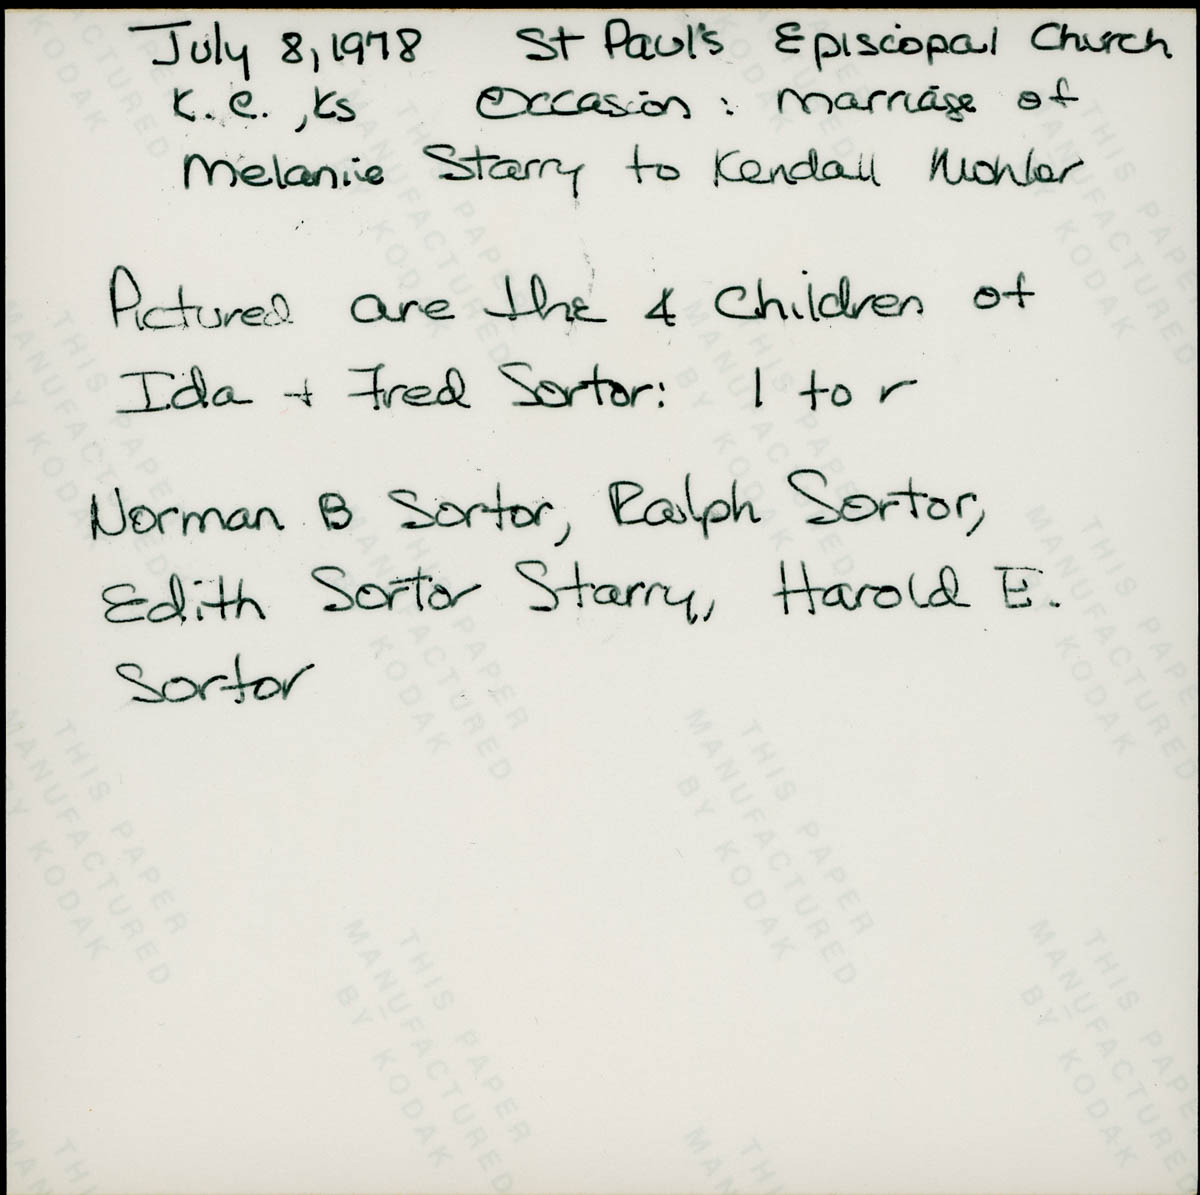 July 8, 1978 St Paul's Episcopal Church
K.C., Ks Occasion: Marriage of
Melanie Starry to Kendall Mohler
Pictured are the 4 Children of
Ida + Fred Sortor: l to r
Norman B Sortor, Ralph Sortor,
Edith Sortor Starry, Harold E.
Sortor
THIS PAPER
MANUFACTURED
BY KODAK